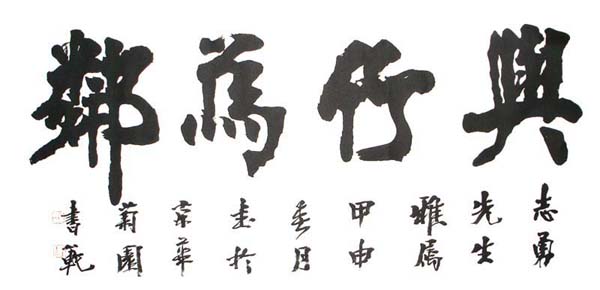 與竹為鄰
志勇
先生
雅属
甲申
春月
書於
京華
菊園
書範